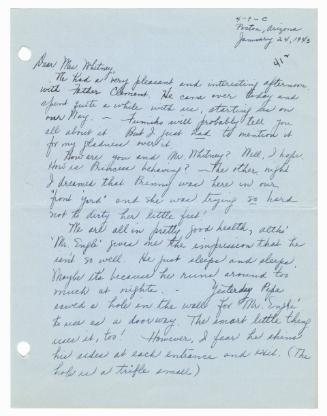 4-9-C
Poston, Arizona
January 24, 1943
Dear Mrs. Whitney,
We had a very pleasant and interesting afternoon
with Father Clement. He came over today and
spent quite a while with us, starting us on
our Way. — Fumiko will probably tell you
all about it. But I just had to mention it
for my gladness over it.
How are you and Mr. Whitney? Well, I hope.
How is Princess behaving? — The other night
I dreamed that Prenny was here in our
"front yard" and she was trying so hard
not to dirty her little feet!
We are all in pretty good health, altho'
'Mr. Engle' gives me the impression that he
isn't so well. He just sleeps and sleeps.
Maybe its because he runs around too
much at nights. - Yesterday Papa
sawed a hole in the walls for 'Mr. Engle'
to use as a doorway. The smart little thing
uses it, too! However, I fear he skins
his sides at each entrance and exit. (The
hole is a trifle small)